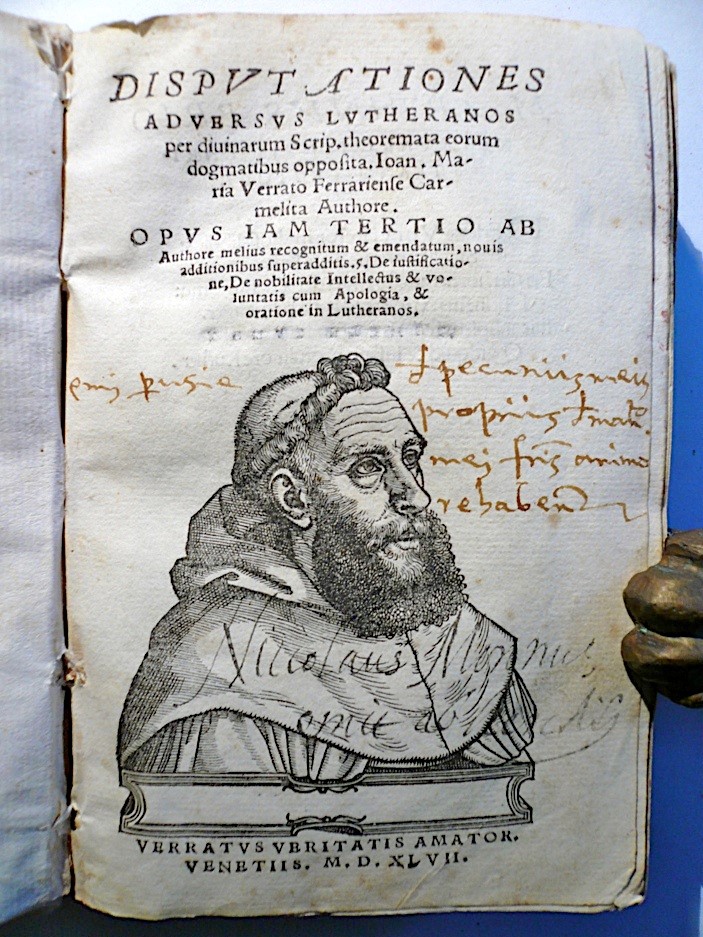 DISPVTATIONES
ADVERSVS LVTHERANOS
per diuinarum Scrip. theoremata eorum
dogmatibus opposita. Ioan. Ma-
ria Verrato Ferrariense Car-
melita Authore.
OPVS IAM TERTIO AB
Authore melius recognitum & emendatum, nouis
additionibus superadditis. s. De iustificatio-
ne, De nobilitate Intellectus & vo-
luntatis cum Apologia, &
oratione in Lutheranos.
emi
pecuniis meis
propriis
mei
rehaben
Nicolaus
emit
VERRATVS VERITATIS AMATOR.
VENETIIS. M. D. XLVII.